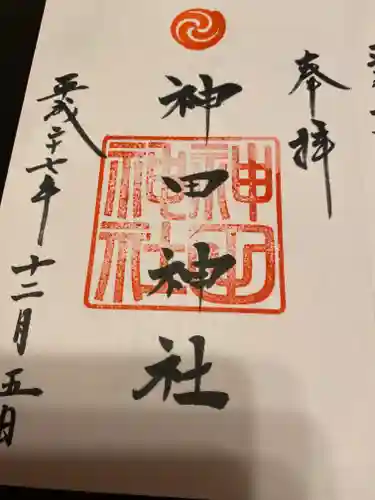 奉拝
神田神社
平成二十七年
十二月五日